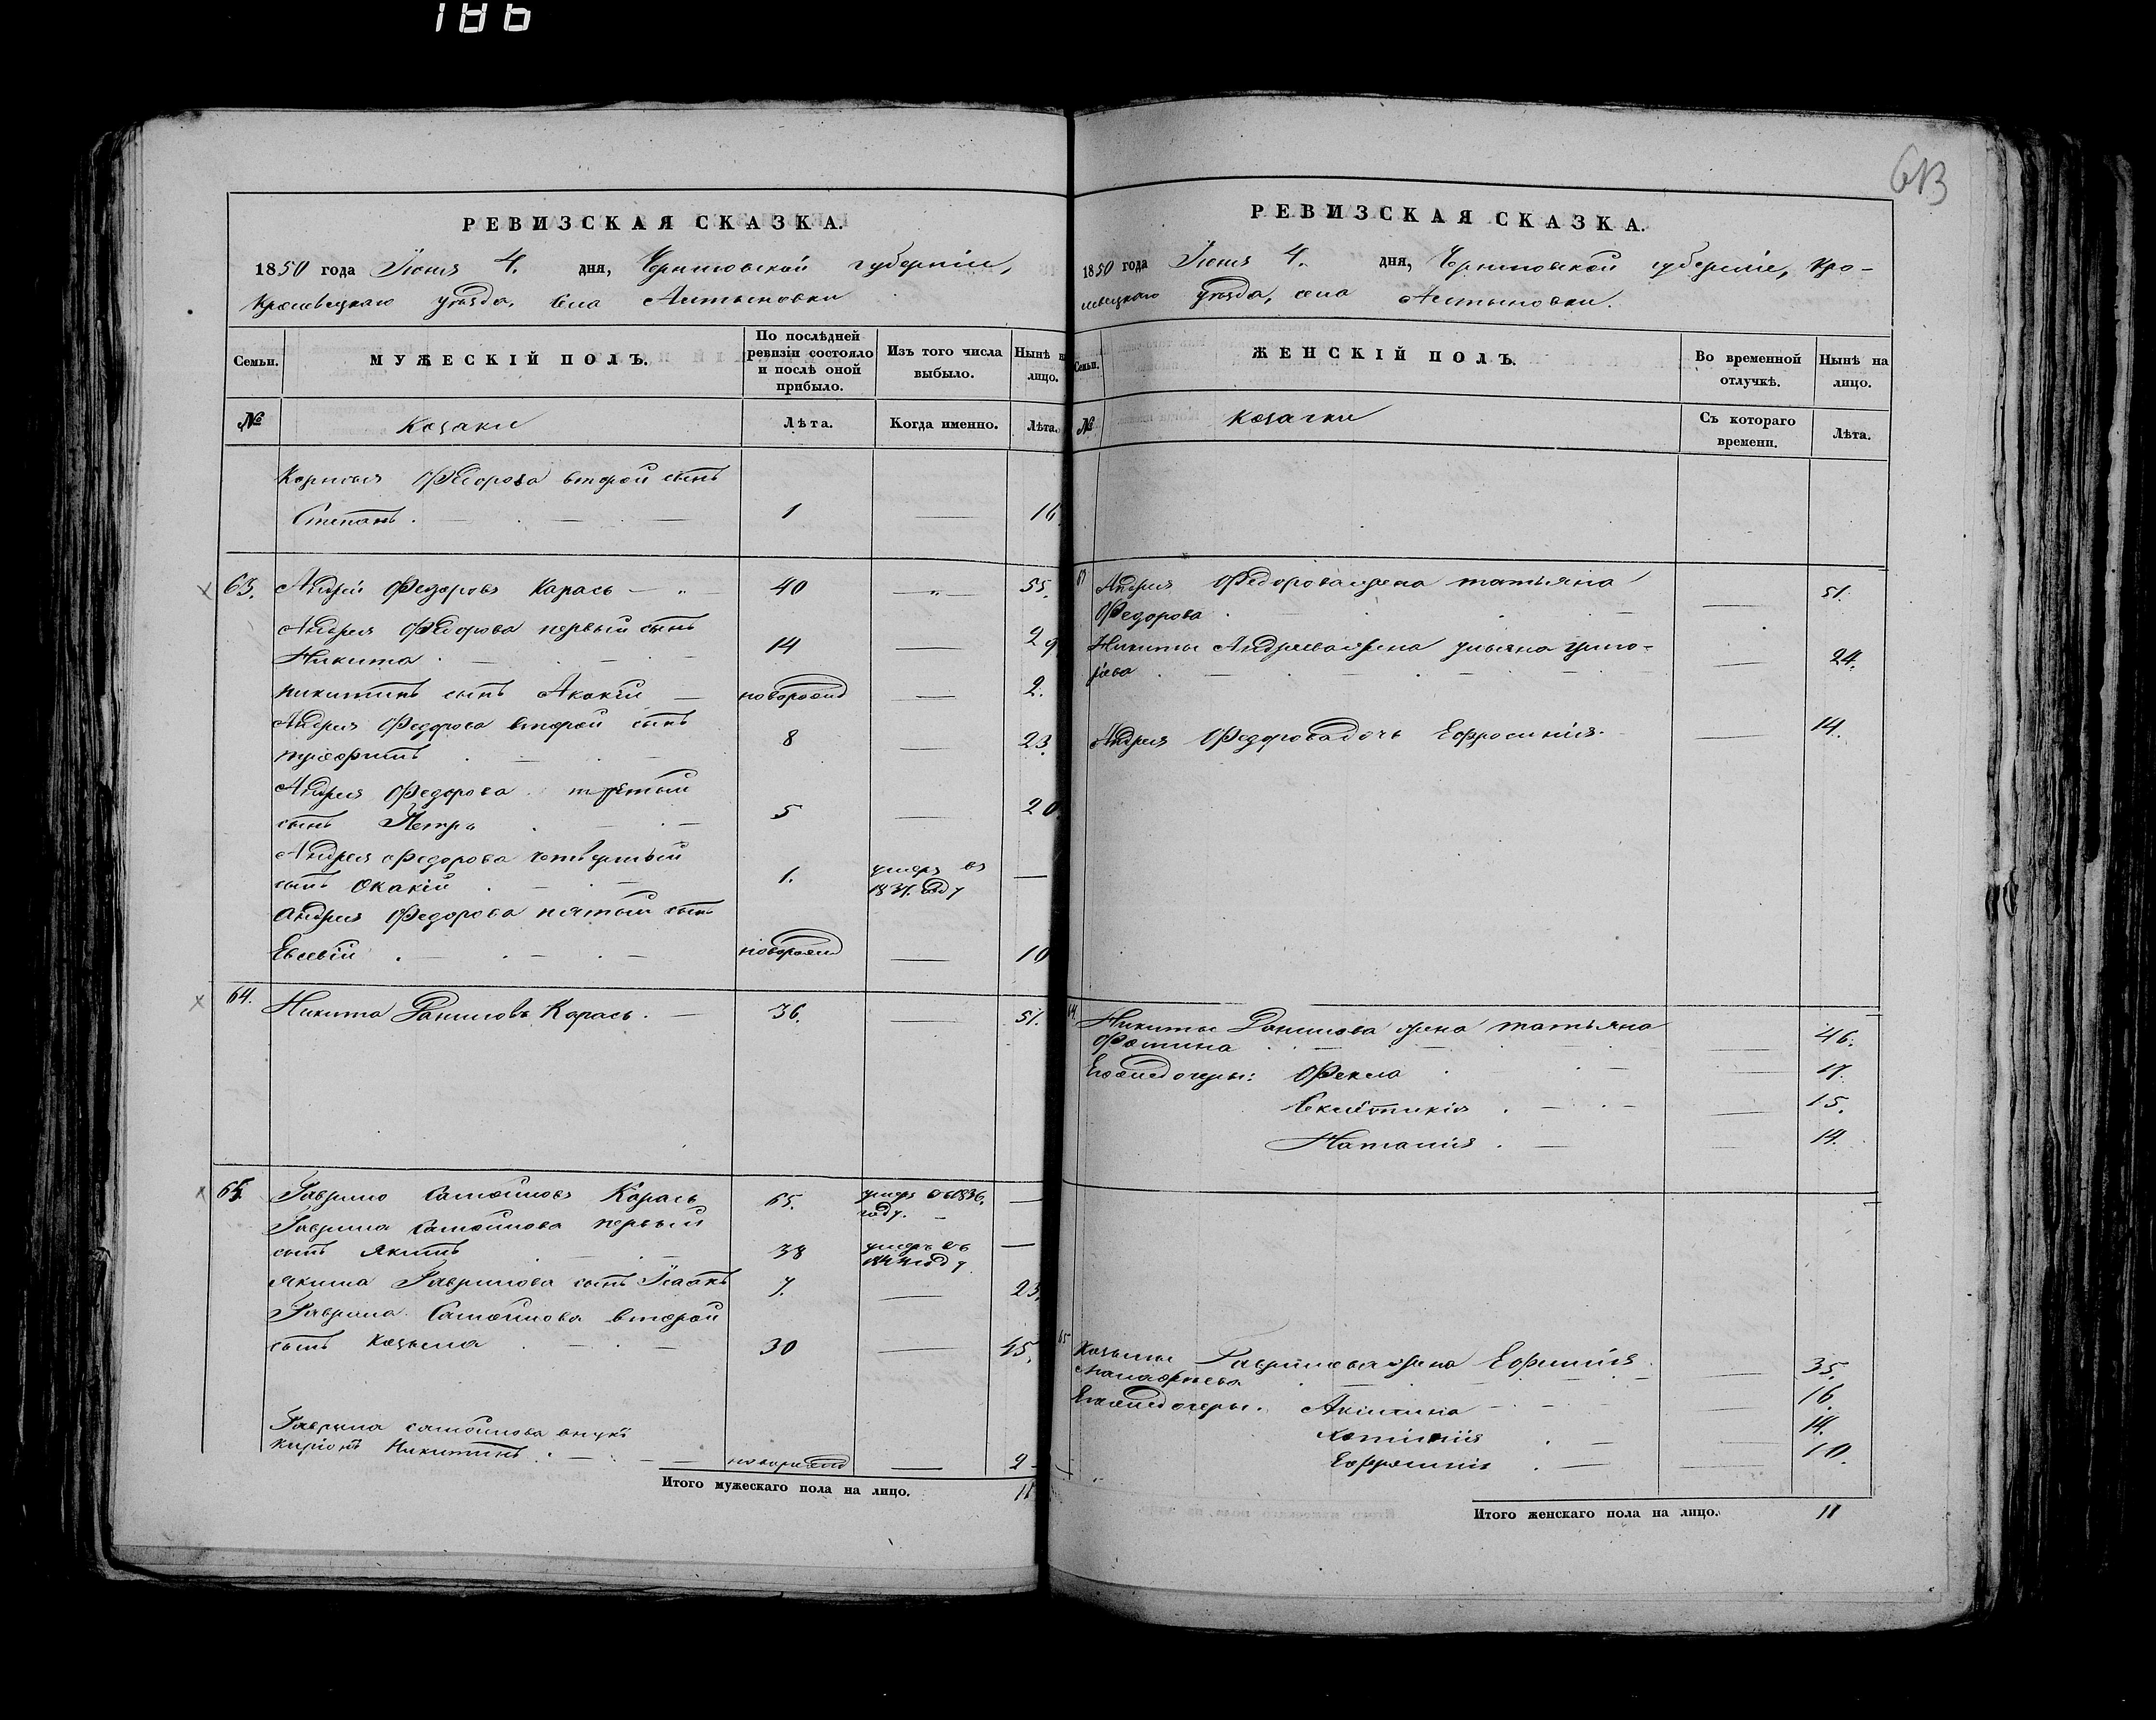 186
613
РЕВИЗСКАЯ СКАЗКА.
1850 года Іюня 4. дня, Черниговской губерніи,
Кролевецкаго уѣзда, села Алтыновки
Семьи. МУЖЕСКІЙ ПОЛЪ. По послѣдней ревизіи состояло и послѣ оной прибыло. Изъ того числа выбыло. Нынѣ на лицо.
№ Козаки Лѣта. Когда именно. Лѣта.
Корнилія Федорова второй сынъ
Степанъ. 1 — 16
63. Андрей Федоровъ Карась 40 — 55.
Андрея Федорова первый сынъ
Никита 14 — 29
Никитинъ сынъ Акакій новорожд — 2.
Андрея Федорова второй сынъ
8 — 23.
Андрея Федорова третый
сынъ Петръ 5 — 20
Андрея Федорова четвертый
сынъ Окакій 1. умеръ въ 1837. году —
Андрея Федорова пятый сынъ
Евсевій новорожд — 10
64. Никита Даниловъ Карась. 36. — 51.
65. Гаврило Самойловъ Карась 65. умеръ въ 1836. году. —
Гаврила Самойлова первый
сынъ Якимъ 38 умеръ въ году —
Якима Гаврилова сынъ Исаакъ 7. — 23.
Гаврила Самойлова второй
сынъ Козьма 30 — 45.
Гаврила Самойлова внукъ
Никитинъ новорожд — 2
Итого мужескаго пола на лицо. 11
РЕВИЗСКАЯ СКАЗКА.
1850 года Іюня 4. дня, Черниговской губерніи, Кро-
левецкаго уѣзда, села Алтыновки.
Семьи. ЖЕНСКІЙ ПОЛЪ. Во временной отлучкѣ. Нынѣ на лицо.
№ Козачки Съ котораго времени. Лѣта.
63 Андрея Федорова жена Татьяна
Федорова — 51.
Никиты Андреева жена Ульяна Григо-
рьева — 24.
Андрея Федорова дочь Ефросинія. — 14.
64. Никиты Данилова жена Татьяна
Фотина — 46.
Его же дочери: Фекла — 17.
15.
Наталія — 14.
65 Козьмы Гаврилова жена Ефимія — 35.
Его же дочери. Акилина — 16.
14.
Ефросинія — 10.
Итого женскаго пола на лицо. 11